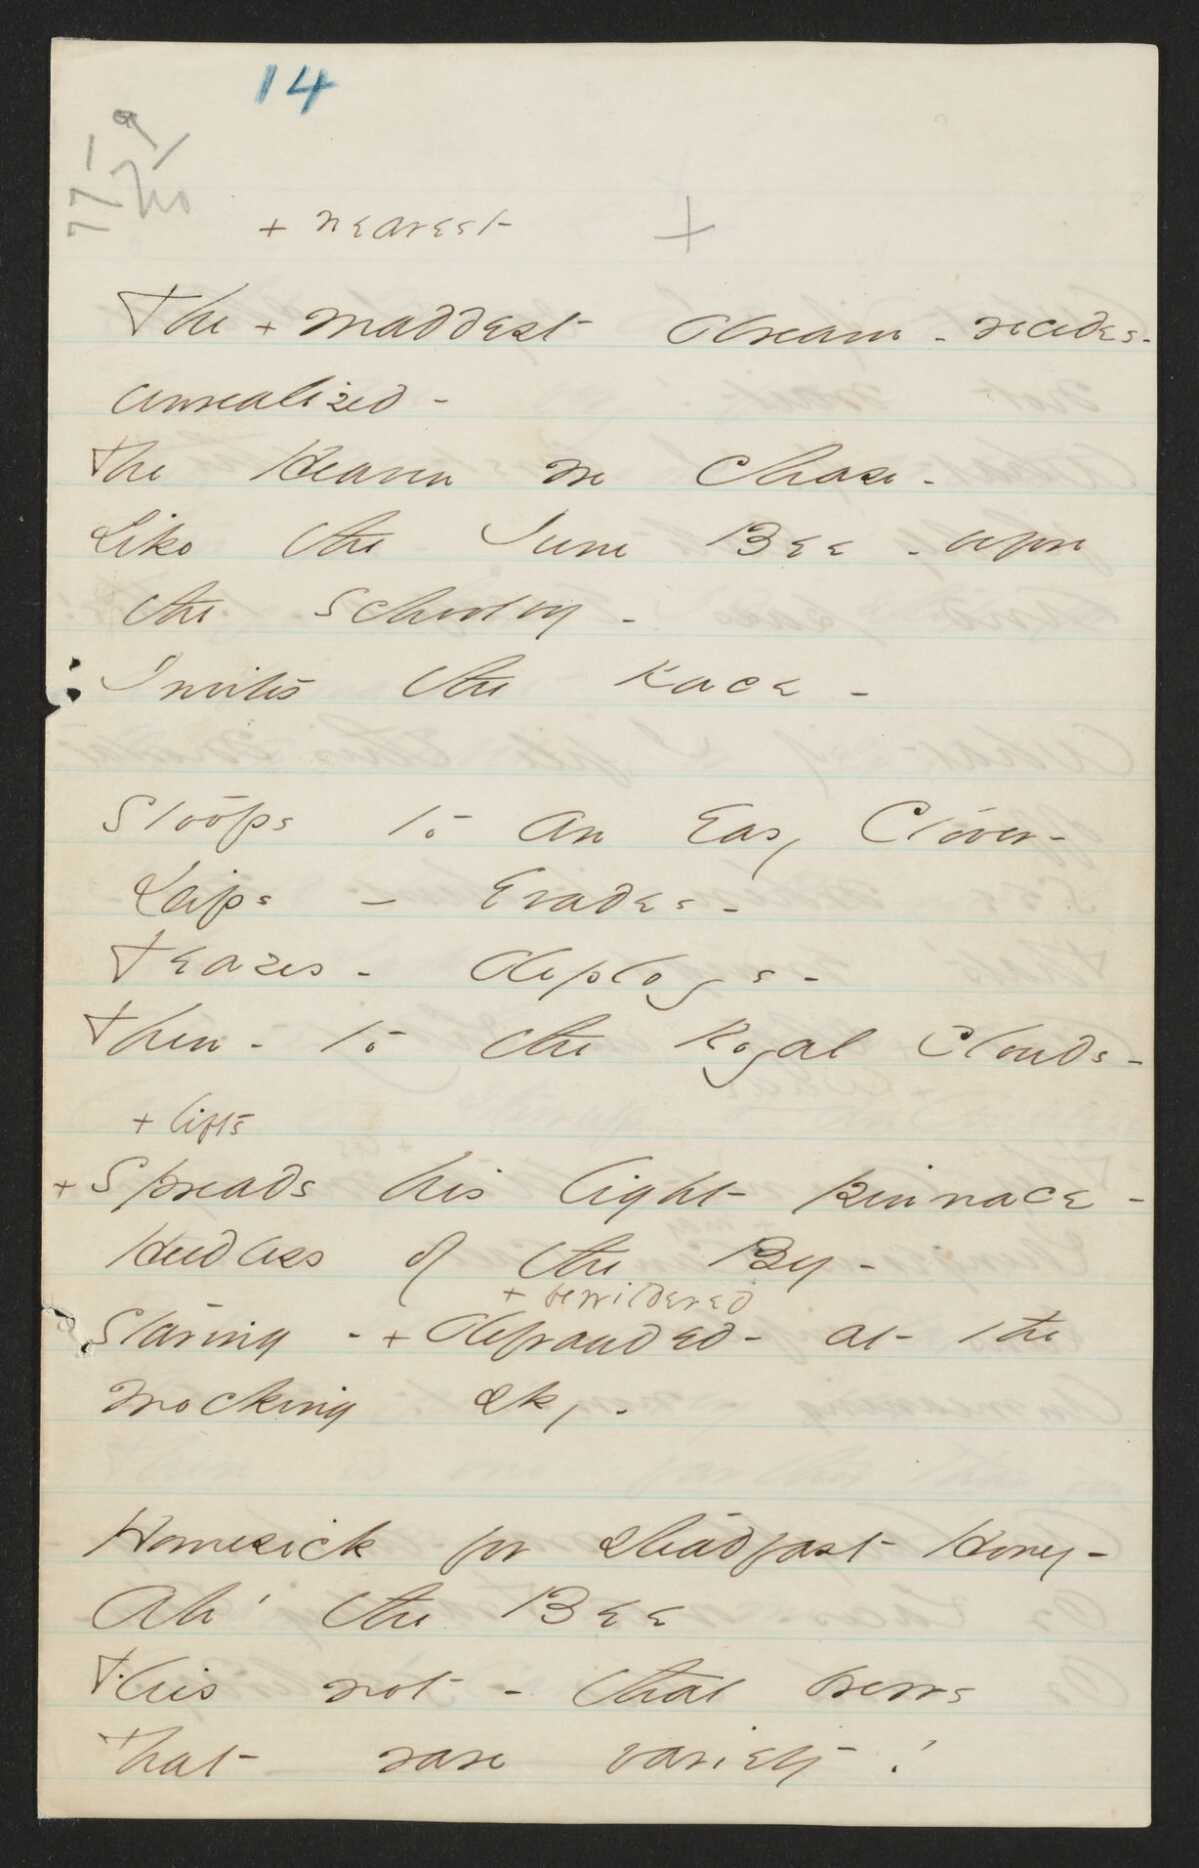 14
+ nearest
The + maddest dream - recedes -
unrealized -
The Heaven we chase -
Like the June Bee - before
the School boy -
Invites the Race -
Stoops to an Easy Clover -
Dips - Evades -
Teazes - deploys -
Then - to the Royal Clouds -
+ lifts
+ Spreads his light pinnace -
Heedless of the Boy -
+ bewildered
Staring - + defrauded - at the
mocking sky -
Homesick for steadfast Honey -
Ah! the Bee
Flies not - that brews
That rare variety !